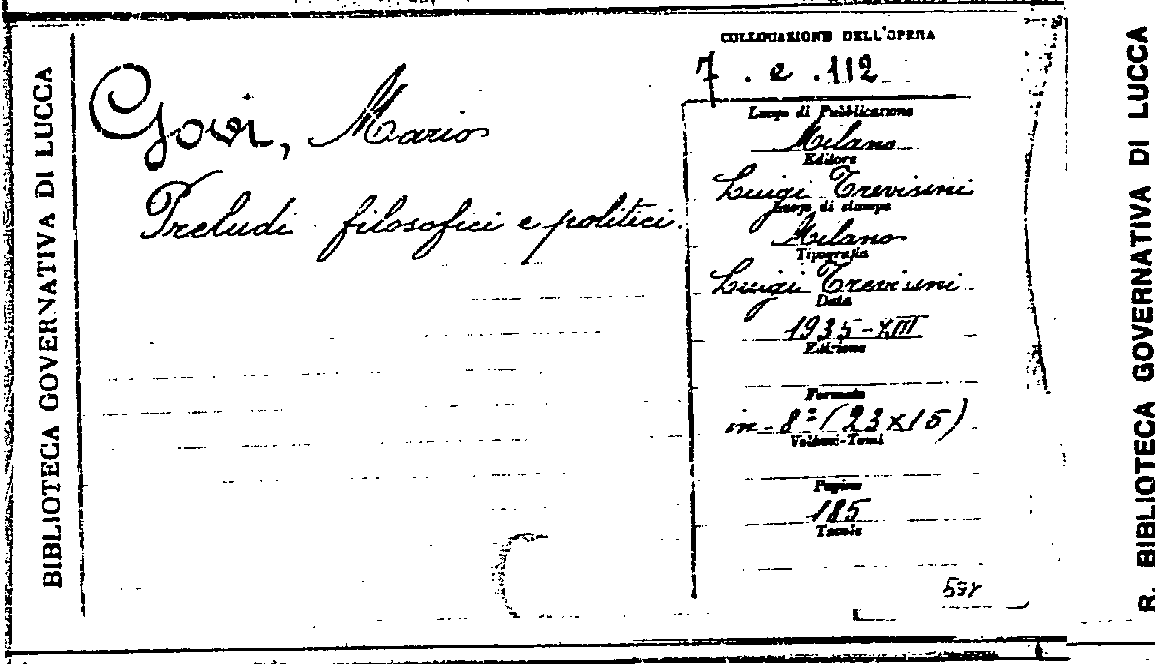 BIBLIOTECA GOVERNATIVA DI LUCCA
Govi, Mario
Preludi filosofici e politici.
COLLOCAZIONE DELL'OPERA
7 . e . 112
Luogo di Pubblicazione
Milano
Editore
Luigi Trevisini
Luogo di stampa
Milano
Tipografia
Luigi Trevisini
Data
1935-XIII
Edizione
Formato
in-8º (23x15)
Volumi-Tomi
Pagine
185
Tavole
R. BIBLIOTECA GOVERNATIVA DI LUCCA